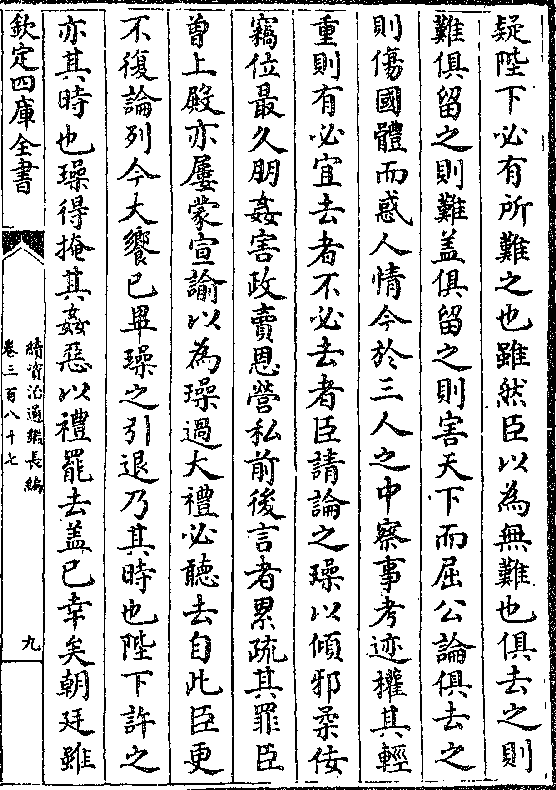 疑陛下必有所難之也雖然臣以為無難也俱去之則
難俱留之則難盖俱留之則害天下而屈公論俱去之
則傷國體而惑人情今於三人之中察事考迹權其輕
重則有必宜去者不必去者臣請論之璪以傾邪柔佞
竊位最久朋姦害政賣恩營私前後言者累疏其罪臣
曽上殿亦屢蒙宣諭以為璪過大禮必聽去自此臣更
不復論列今大饗已畢璪之引退乃其時也陛下許之
亦其時也璪得掩其姦惡以禮罷去盖已幸矣朝廷雖
欽定四庫全書
續資治通鑑長編
卷三百八十七
九